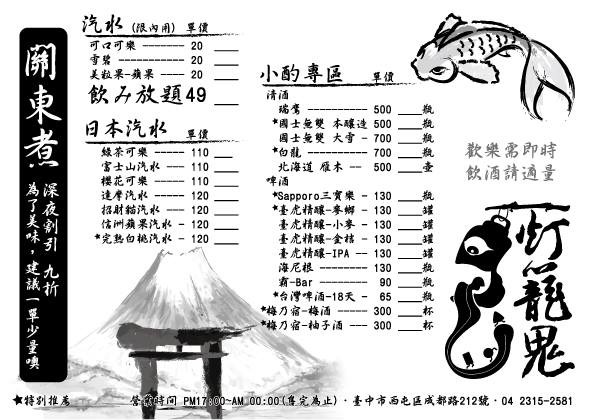 關東煮
深夜割引 九折
為了美味，建議一單少量噢
汽水 (限內用) 單價
可口可樂 ------- 20 ___
雪碧 ----------- 20 ___
美粒果-蘋果 ---- 20 ___
飲み放題49 ___
日本汽水 單價
綠茶可樂 ------ 110 ___
富士山汽水 ---- 110 ___
櫻花可樂 ------ 110 ___
達摩汽水 ------ 120 ___
招財貓汽水 ---- 120 ___
信洲蘋果汽水 - 120 ___
*完熟白桃汽水 - 120 ___
小酌專區 單價
清酒
瑞鷹 ---------- 500 ___瓶
*國士無雙 本釀造 500 ___瓶
國士無雙 大雪 - 700 ___瓶
*白龍 ---------- 700 ___瓶
北海道 雁木 -- 500 ___壺
啤酒
*Sapporo三寶樂 - 130 ___瓶
*臺虎精釀-麥鄉 - 130 ___罐
臺虎精釀-小麥 - 130 ___罐
臺虎精釀-金桔 - 130 ___罐
臺虎精釀-IPA -- 130 ___罐
海尼根 -------- 130 ___瓶
霸-Bar -------- 90 ___瓶
*台灣啤酒-18天 - 65 ___瓶
*梅乃宿-梅酒 ---- 300 ___杯
*梅乃宿-柚子酒 --- 300 ___杯
歡樂需即時
飲酒請適量
灯籠鬼
★特別推薦 營業時間 PM17:00~AM 00:00(售完為止)‧臺中市西屯區成都路212號‧04 2315-2581